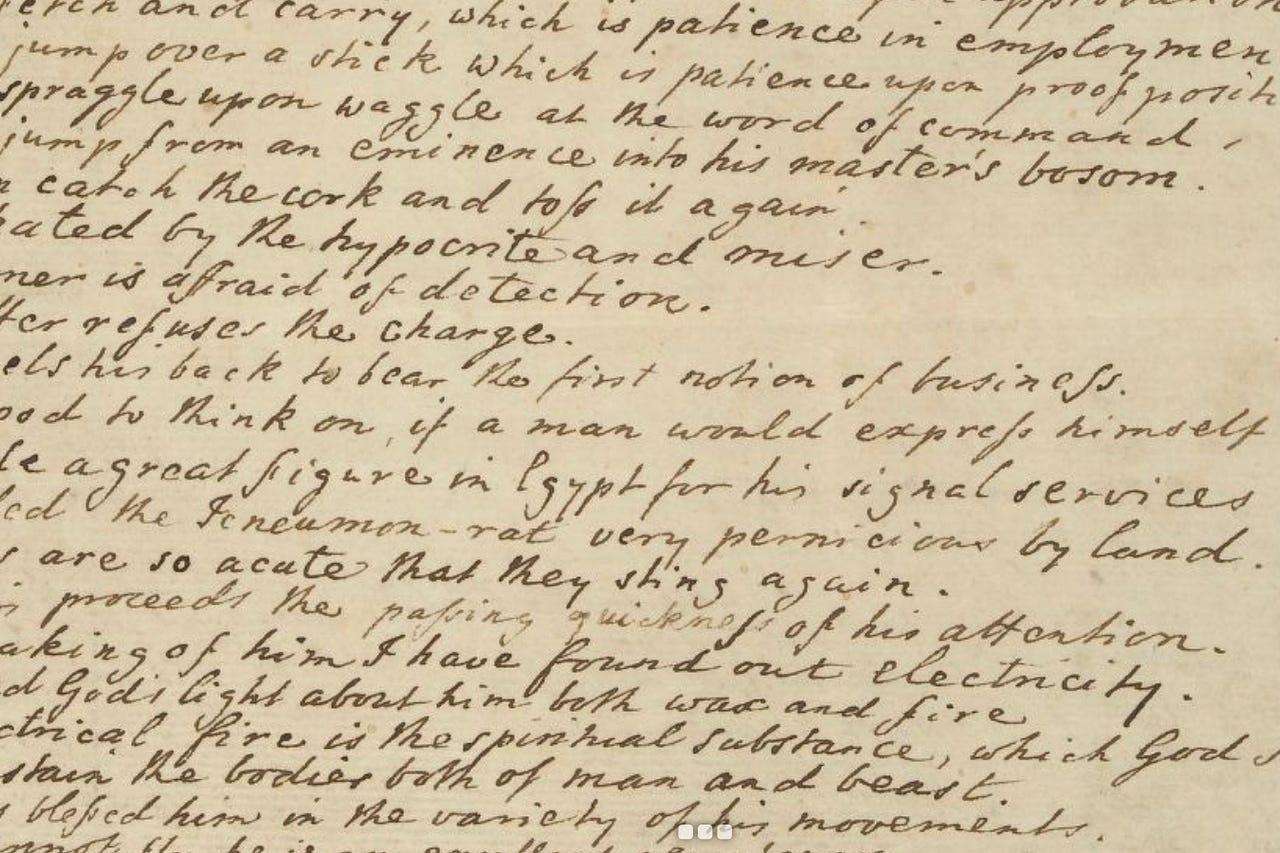 and carry, which is patience in employmen
jump over a stick which is patience upon proof posit
spraggle upon waggle at the word of command,
jump from an eminence into his master's bosom.
catch the cork and toſs it again.
ated by the hypocrite and miser.
mer is affraid of detection.
ter refuses the charge.
els his back to bear the first notion of business.
ood to think on, if a man would expreſs himself
de a great figure in Egypt for his signal services
led the Icneumon-rat very pernicious by land.
s are so acute that they sting again.
is proceeds the paſsing quickneſs of his attention.
aking of him I have found out electricity.
d God's light about him both wax and fire
ctrical fire is the spiritual substance, which God s
stain the bodies both of man and beast.
s bleſsed him in the variety of his movements.